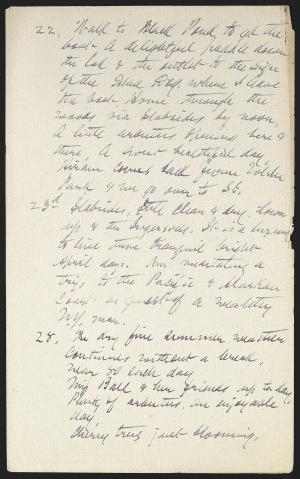 22. Walk to Black Pond, to get the
boat. A delightful paddle down
the lake & the outlet to the sign
of the Dead Dog, where I leave
the boat. Home through the
woods via Slabsides by noon,
A little arbutus opening here &
there. A most beautiful day.
Hiram comes back from
Park & we go over to S.S.
23rd Slabsides, still clear & dry. Down
up & the It is a luxury
to live these tranquil bright
April days. Am meditating a
trip to the Pacific & Alaskan
Coast as guest of a wealthy
N.Y. man.
28. The dry fine summer weather
continues without a break,
near 80 each day
Miss Ball & her friends up to day,
Plenty of arbutus. An enjoyable
day
Cherry trees just blooming.